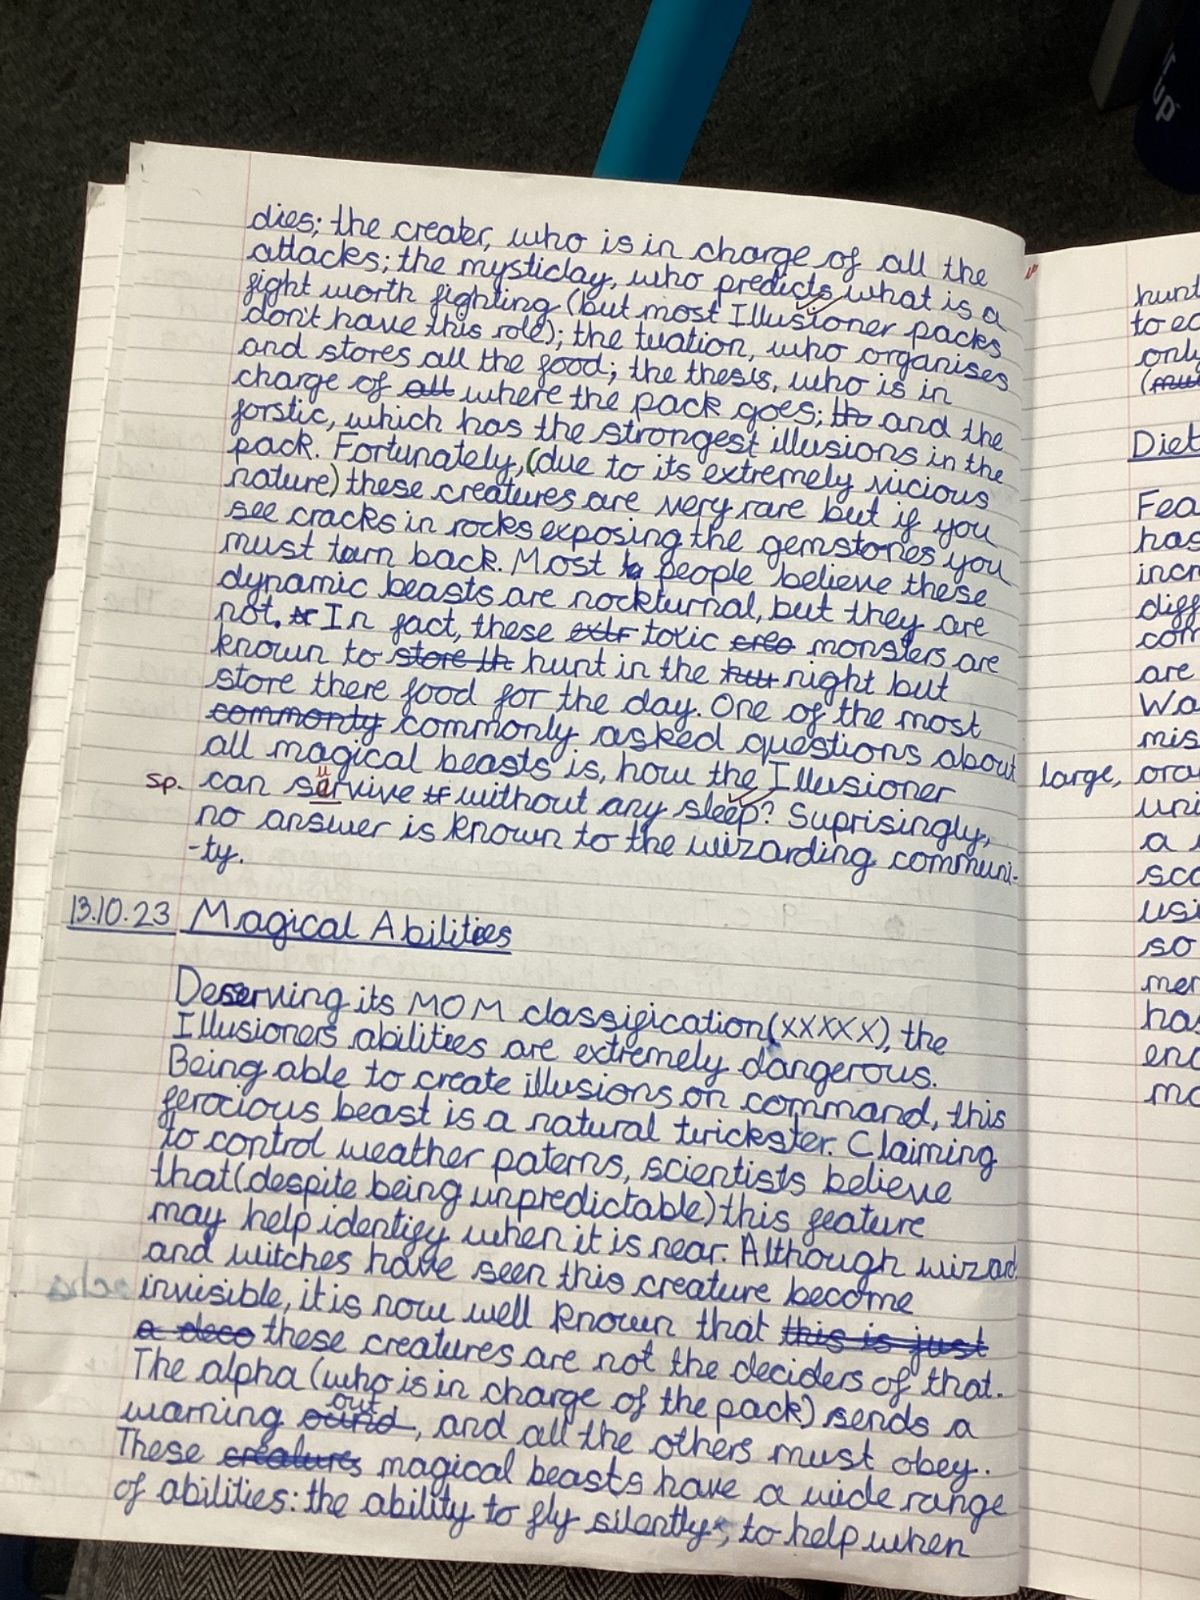 dies; the creater, who is in charge of all the
attacks; the mysticlay, who predicts what is a
fight worth fighting (but most Illusioner packs
don't have this role); the tuation, who organises
and stores all the food; the thesis, who is in
charge of all where the pack goes; th and the
forstic, which has the strongest illusions in the
pack. Fortunately, (due to its extremely vicious
nature) these creatures are very rare but if you
see cracks in rocks exposing the gemstones you
must turn back. Most people believe these
dynamic beasts are nockturnal, but they are
not. In fact, these extr toxic crea monsters are
known to store th hunt in the hun night but
store there food for the day. One of the most
commonty commonly asked questions about
all magical beasts is, how the Illusioner
sp. can survive without any sleep? Suprisingly,
no answer is known to the wizarding communi-
-ty.
13.10.23 Magical Abilities
Deserving its MOM classification (XXXXX), the
Illusioners abilities are extremely dangerous.
Being able to create illusions on command, this
ferocious beast is a natural twickster. Claiming
to control weather paterns, scientists believe
that (despite being unpredictable) this feature
may help identify when it is near. Although wizard
and witches have seen this creature become
invisible, it is now well known that this is just
a deco these creatures are not the deciders of that.
The alpha (who is in charge of the pack) sends a
warning out, and all the others must obey.
These creatures magical beasts have a wide range
of abilities: the ability to fly silently, to help when
hunt
to ea
only
Diet
Fea
has
incr
diff
com
are
Wa
mis
large, ora
uni
a
sca
usi
so
mer
ha
enc
ma
up